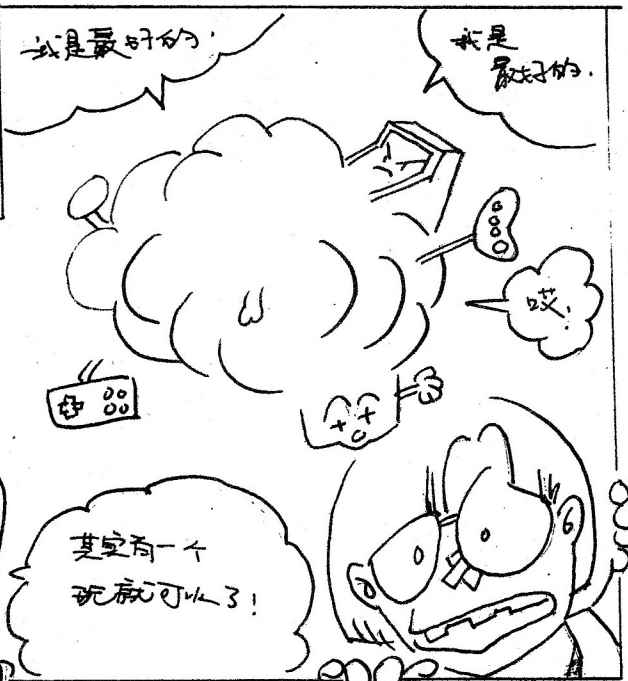 我是最好的.
我是
最好的.
哎!
其实有一个
玩就可以了!